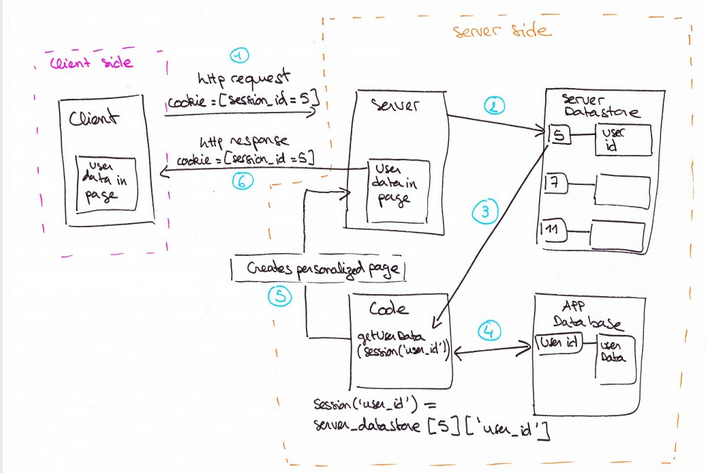 Server side
Client side
1
http request
cookie = [session_id = 5]
Client
User
data in
page
http response
cookie = [session_id = 5]
6
Server
User
data in
page
2
Server
Datastore
5
user
id
7
11
3
Creates personalized page
5
Code
getUserData
(session('user_id'))
4
APP
Database
User id
user
Data
session('user_id') =
server_datastore [5]['user_id']